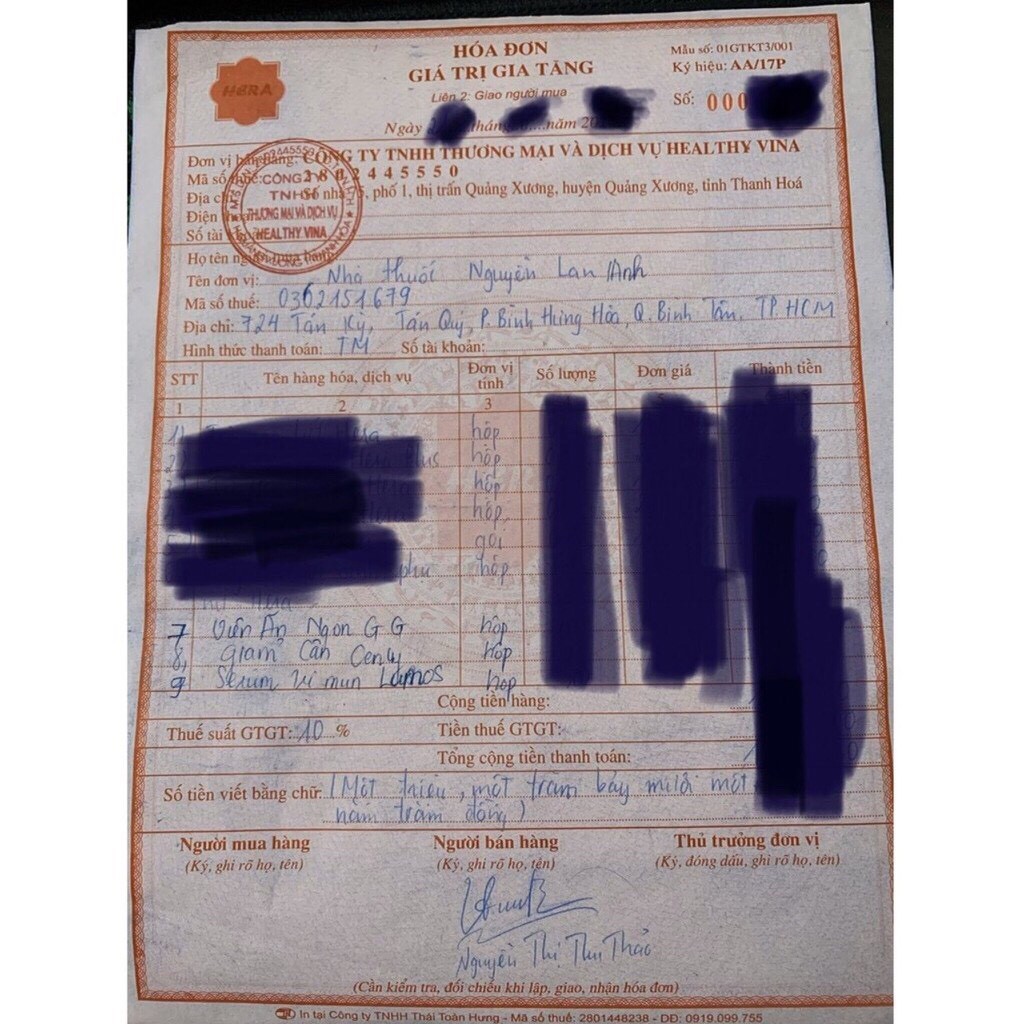 HERA
HÓA ĐƠN
GIÁ TRỊ GIA TĂNG
Liên 2: Giao người mua
Mẫu số: 01GTKT3/001
Ký hiệu: AA/17P
Số: 000
Ngày tháng năm 20
Đơn vị bán hàng: CÔNG TY TNHH THƯƠNG MẠI VÀ DỊCH VỤ HEALTHY VINA
Mã số thuế: 2802445550
Địa chỉ: Số nhà phố 1, thị trấn Quảng Xương, huyện Quảng Xương, tỉnh Thanh Hoá
Điện
Số tài
CÔNG TY
TNHH
THƯƠNG MẠI VÀ DỊCH VỤ
HEALTHY VINA
Họ tên người mua hàng:
Tên đơn vị: Nhà thuốc Nguyễn Lan Anh
Mã số thuế: 0302151679
Địa chỉ: 724 Tân Kỳ, Tân Quý, P. Bình Hưng Hòa, Q. Bình Tân. TP. HCM
Hình thức thanh toán: TM Số tài khoản:
STT Tên hàng hóa, dịch vụ Đơn vị tính Số lượng Đơn giá Thành tiền
1 2 3
hộp
plus hộp
hộp
hộp
gói
phu hộp
7 Viên Ăn Ngon G G hộp
8, Giảm Cân Cenly Hộp
9 Serum vi mun Lamos hop
Cộng tiền hàng:
Thuế suất GTGT: 10 % Tiền thuế GTGT:
Tổng cộng tiền thanh toán:
Số tiền viết bằng chữ: (Một triệu, một trăm bảy mươi một
năm trăm đồng)
Người mua hàng Người bán hàng Thủ trưởng đơn vị
(Ký, ghi rõ họ, tên) (Ký, ghi rõ họ, tên) (Ký, đóng dấu, ghi rõ họ, tên)
Nguyễn Thị Thu Thảo
(Cần kiểm tra, đối chiếu khi lập, giao, nhận hóa đơn)
In tại Công ty TNHH Thái Toàn Hưng - Mã số thuế: 2801448238 - DĐ: 0919.099.755